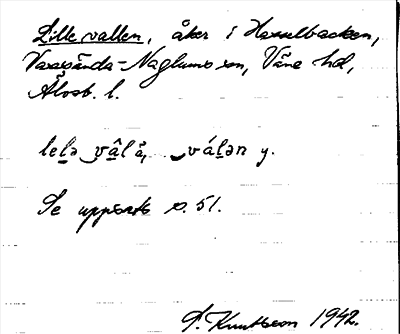 Lille vallen, åker i Hasselbacken,
Vassända-Naglums sn, Väne hd,
Älvsb. l.
lelə vâl å,válən y.
Se uppsats s. 51.
Knutsson 1942.